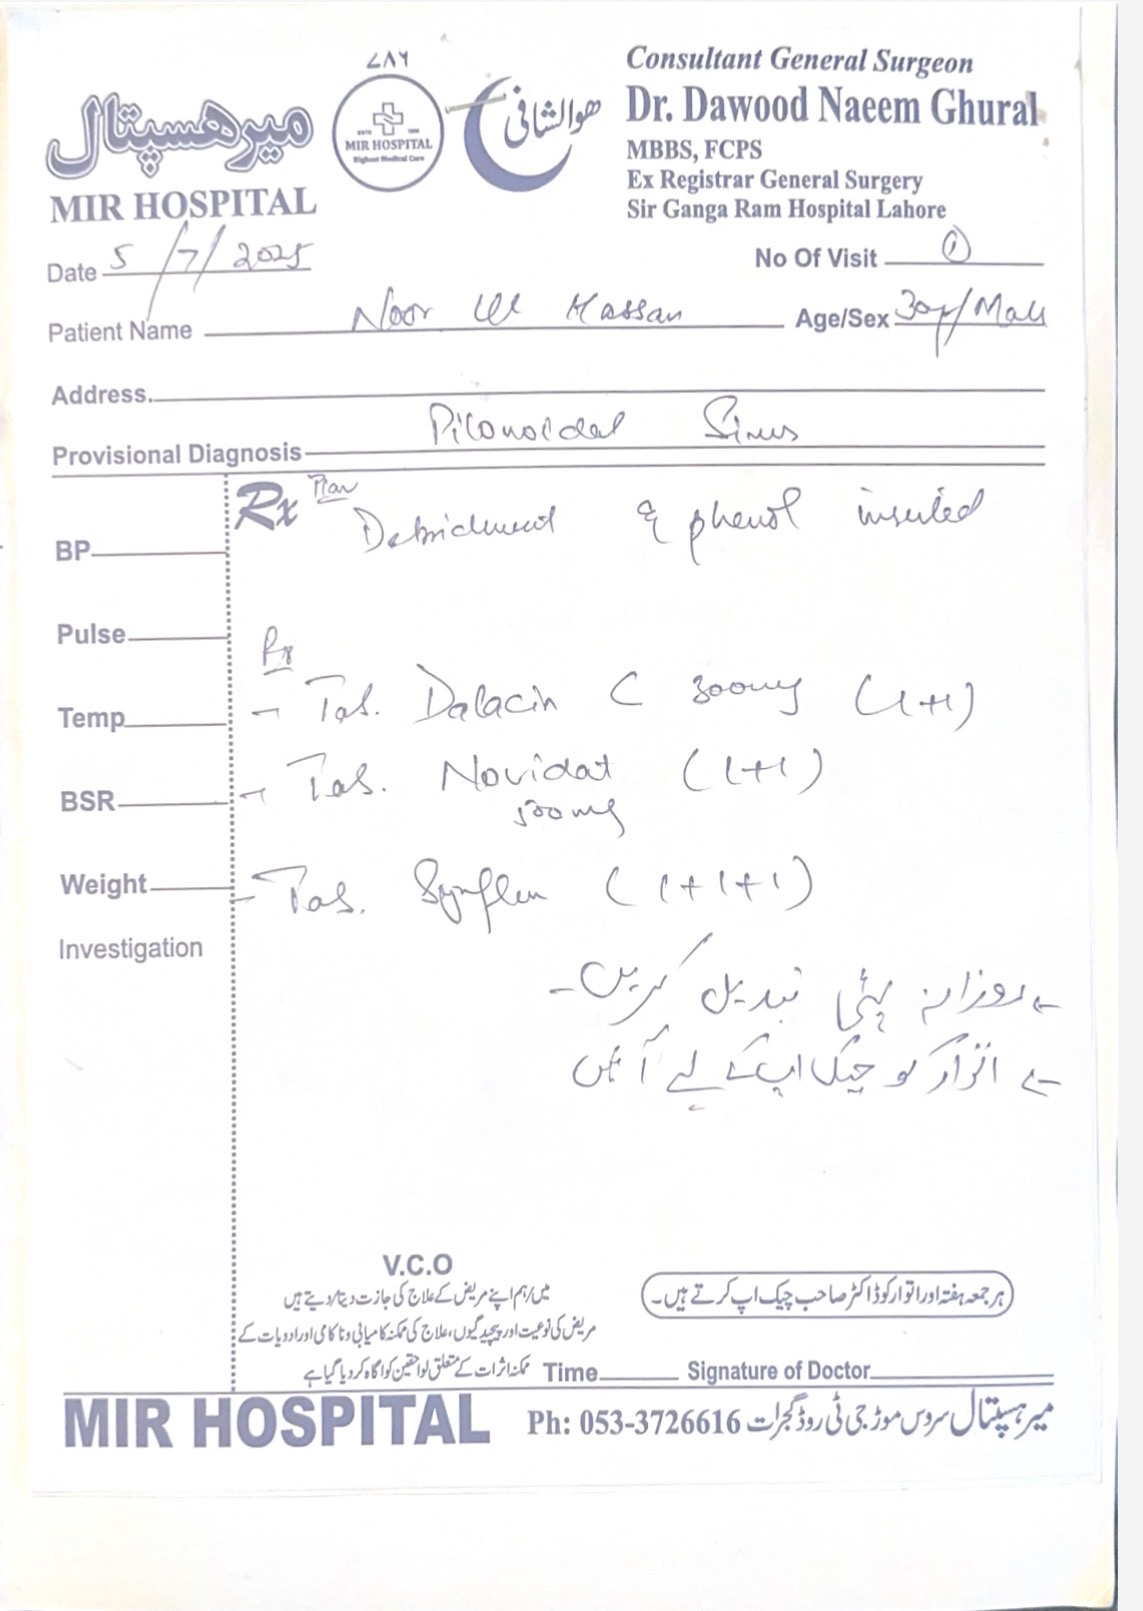 ۷۸۶
میر ہسپتال
MIR HOSPITAL
MIR HOSPITAL
Highest Medical Care
ھوالشافی
Consultant General Surgeon
Dr. Dawood Naeem Ghural
MBBS, FCPS
Ex Registrar General Surgery
Sir Ganga Ram Hospital Lahore
Date 5/7/2025
No Of Visit 1
Patient Name Noor Ul Hassan
Age/Sex 30y/Male
Address.
Provisional Diagnosis Pilonoidal Sinus
Rx Plan
Debridement & phenol inserted
BP
Pulse
Rx
Temp
- Tab. Dalacin C 300mg (1+1)
- Tab. Novidat (1+1)
500mg
BSR
Weight
- Tab. Synflex (1+1+1)
Investigation
روزانہ پٹی تبدیل کریں۔
اتوار کو چیک اپ کے لیے آئیں
V.C.O
میں/ہم اپنے مریض کے علاج کی اجازت دیتا/دیتے ہیں
مریض کی نوعیت اور پیچیدگیوں، علاج کی ممکنہ کامیابی و ناکامی اور ادویات کے
ممکنہ اثرات کے متعلق لواحقین کو آگاہ کر دیا گیا ہے
ہر جمعہ ہفتہ اور اتوار کو ڈاکٹر صاحب چیک اپ کرتے ہیں۔
Time
Signature of Doctor
MIR HOSPITAL
Ph: 053-3726616
میر ہسپتال سروس موڑ جی ٹی روڈ گجرات